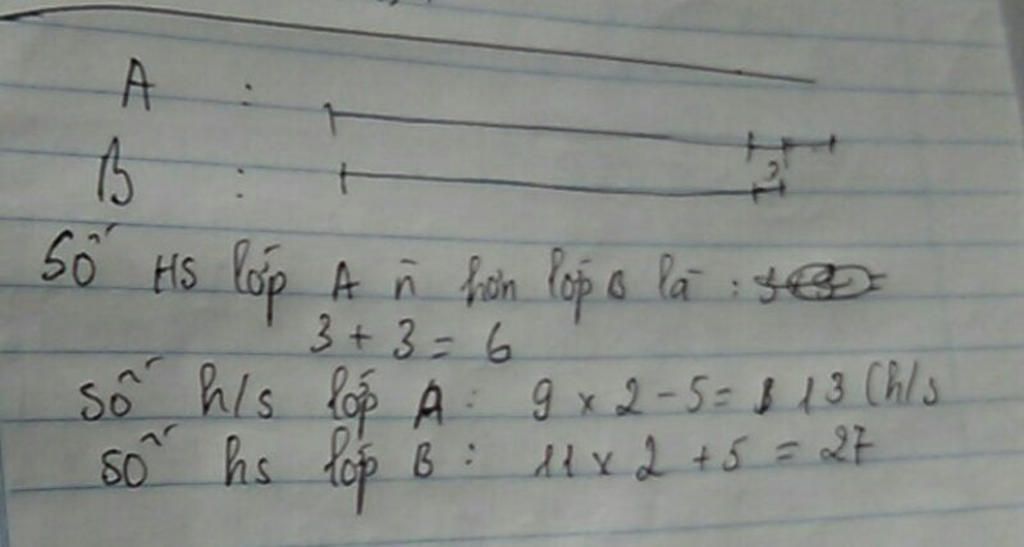 A :
B :
3
Số HS lớp A ñ hơn lớp B là :
3 + 3 = 6
Số h/s lớp A : 9 x 2 - 5 = 13 (h/s
Số hs lớp B : 11 x 2 + 5 = 27